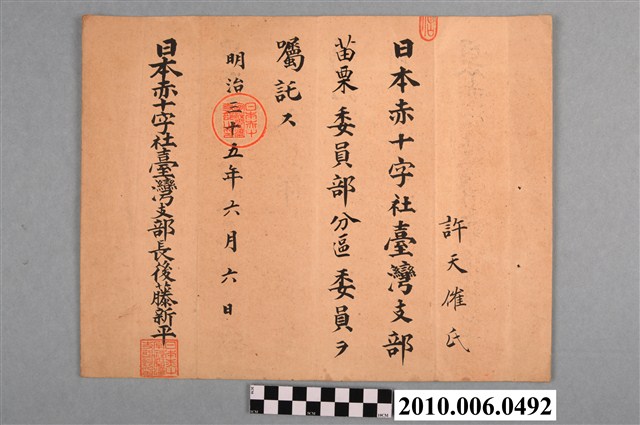 許天催氏
日本赤十字社臺灣支部
苗栗委員部分區委員ヲ
囑託ス
明治三十五年六月六日
日本赤十字社臺灣支部長後藤新平
2010.006.0492